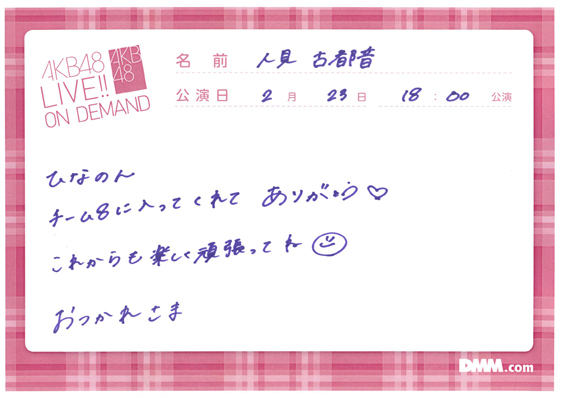 AKB48
LIVE!!
ON DEMAND
AKB
48
名前 人見 古都音
公演日 2月 23日 18:00 公演
ひなのん
チーム8に入ってくれて ありがとう♡
これからも楽しく頑張ってね
おつかれさま
DMM.com